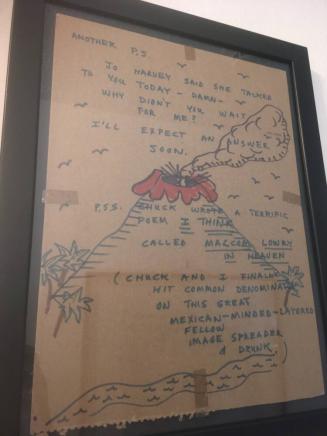 ANOTHER P.S.
JO HARVEY SAID SHE TALKED
TO YOU TODAY - DAMN -
WHY DIDN'T YOU WAIT
FOR ME?
I'LL EXPECT AN ANSWER
SOON.
P.S.S. CHUCK WROTE A TERRIFIC
POEM I THINK
CALLED MALCOLM LOWRY
IN HEAVEN
(CHUCK AND I FINALLY
HIT COMMON DENOMINATOR
ON THIS GREAT
MEXICAN-MINDED-LAYERED
FELLOW
IMAGE SPREADER
& DRUNK.)